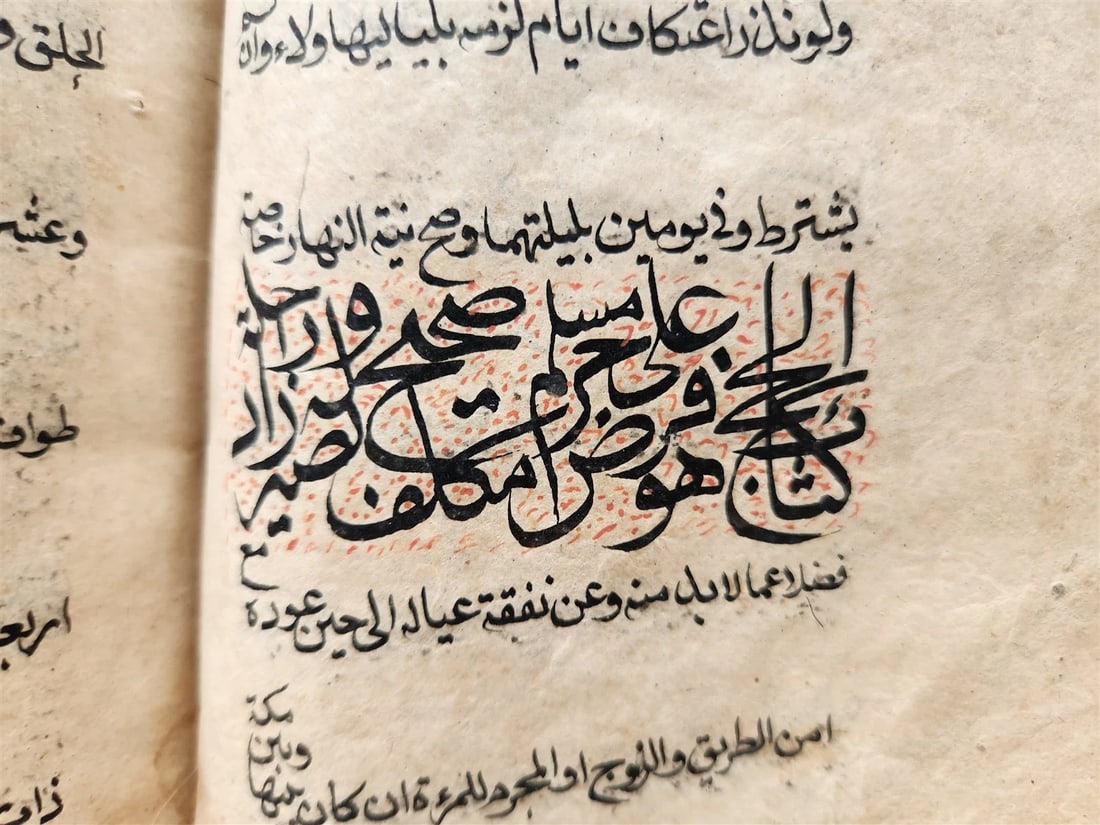 ولو نذر اعتكاف ايام لزمه بلياليها ولاء وان لم
يشترط وفي يومين بليلتهما وصح نية النهار خاصة
كتاب الحج هو فرض على حر مسلم مكلف صحيح بصير له زاد وراحلة
فضلا عما لا بد منه وعن نفقة عياله الى حين عوده مع
امن الطريق والزوج او المحرم للمرءة ان كان بينها وبين مكة
الحلق
وعشر
طواف